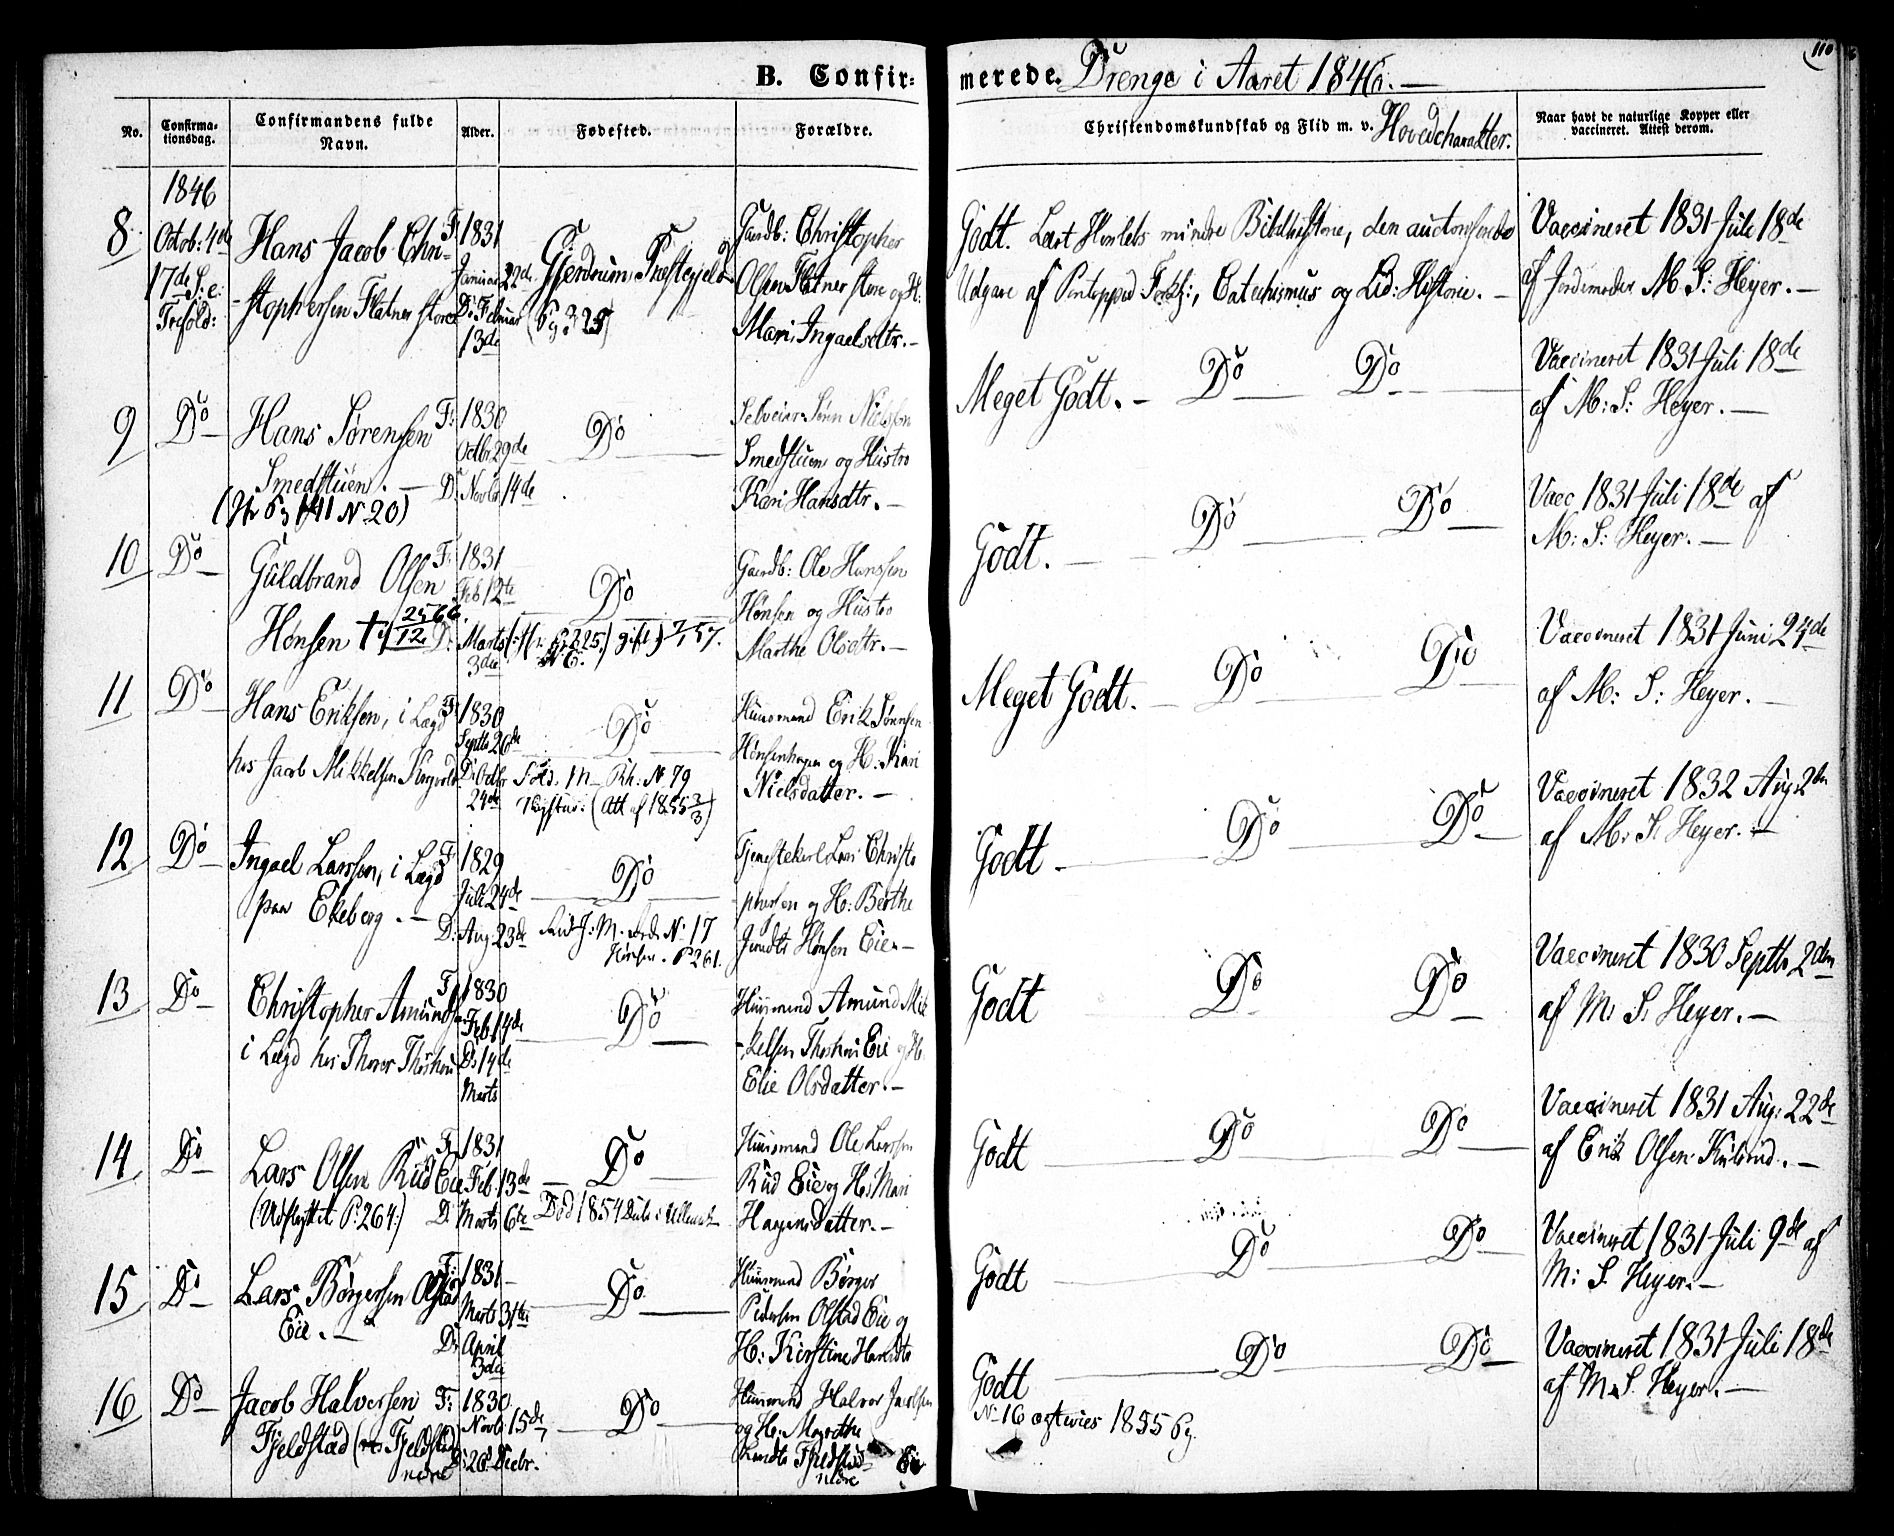 110
B. Confir- merede. Drenge i Aaret 1846. —
No.
Confirma-
tionsdag.
Confirmandens fulde
Navn.
Alder.
Fødested.
Forældre.
Christendomskundskab og Flid m. v. Hovedcharakter.
Naar havt de naturlige Kopper eller
vaccineret. Attest derom.
1846
8
Octob: 4de
17de S. e:
Trefold:
Hans Jacob Chri-
-stophersen Flatner store
F: 1831
Januar 22de
D: Februar
13de
Gjerdrum Præstegjeld
Gaardb: Christopher
Olsen Flatner store og H:
Mari Ingaelsdtr. —
Godt. Læst mindre Bibelhistorie, den auctoriserede
Udgave af Pontoppid: Forkl:, Catechismus og Lid: Historie. —
Vaccineret 1831 Juli 18de
af Jordemoder M. S: Heyer. —
9
Do
Hans Sørensen
Smedstuen. —
F: 1830
Octbr 29de
D: Novbr 14de
Do
Selveier Søren Nielsen
Smedstuen og Hustro
Kari Hansdtr. —
Meget Godt. — Do Do
Vaccineret 1831 Juli 18de
af M: S: Heyer. —
10
Do
Guldbrand Olsen
Hønsen
F: 1831
Feb 12te
D: Marts
3die
Do
Gaardb: Ole Hanssen
Hønsen og Hustro
Marthe Olsdtr. —
Godt. — Do Do
Vacc. 1831 Juli 18de af
M: S: Heyer. —
11
Do
Hans Eriksen, i Lægd
hos Jacob Mikkelsen
F: 1830
Septbr 26de
D: Octbr
24de
Do
Huusmand Erik Sørensen
Hønsenhagen og H: Kari
Nielsdatter. —
Meget Godt. — Do Do
Vaccineret 1831 Juni 24de
af M: S: Heyer. —
12
Do
Ingael Larssen, i Lægd
paa Ekeberg. —
F: 1829
Juli 24de
D: Aug: 23de
Do
No 17
P 261.
Tjenestekarl Lars Christo
phersen og H: Berthe
Hønsen Eie. —
Godt — Do Do
Vaccineret 1832 Aug: 2den
af M: S. Heyer. —
13
Do
Christopher Amundsen
i Lægd hos Thorer
F: 1830
Feb. 14de
D: 14de
Marts
Do
Huusmand Amund Mik
-kelsen Eie og H:
Elie Olsdatter. —
Godt Do Do
Vaccineret 1830 Septbr 2den
af M: S. Heyer. —
14
Do
Lars Olsen Rud Eie
(Udflyttet P: 264.)
F: 1831
Feb. 13de
D: Marts 6te
Do
Død 1854
Huusmand Ole Larssen
Rud Eie og H: Mari
Hagensdatter. —
Godt — Do Do
Vaccineret 1831 Aug: 22de
af Erik Olsen. —
15
Do
Lars Børgersen Olstad
Eie. —
F: 1831 —
Marts 31te
D: April
3die
Do
Huusmand Børger
Pedersen Olstad Eie og
H: Kirstine
Godt Do Do
Vaccineret 1831 Juli 9de af
M: S. Heyer. —
16
Do
Jacob Halvorsen
Fjeldstad ( Fjeldstad
nedre
F: 1830
Novb: 15de
D: 26 Decbr.
Do
Huusmand Halvor Jacobsen
og H: Marthe
Fjeldstad
nedre Eie
Godt Do Do
No 16 1855
Vaccineret 1831 Juli 18de
af M. S. Heyer. —